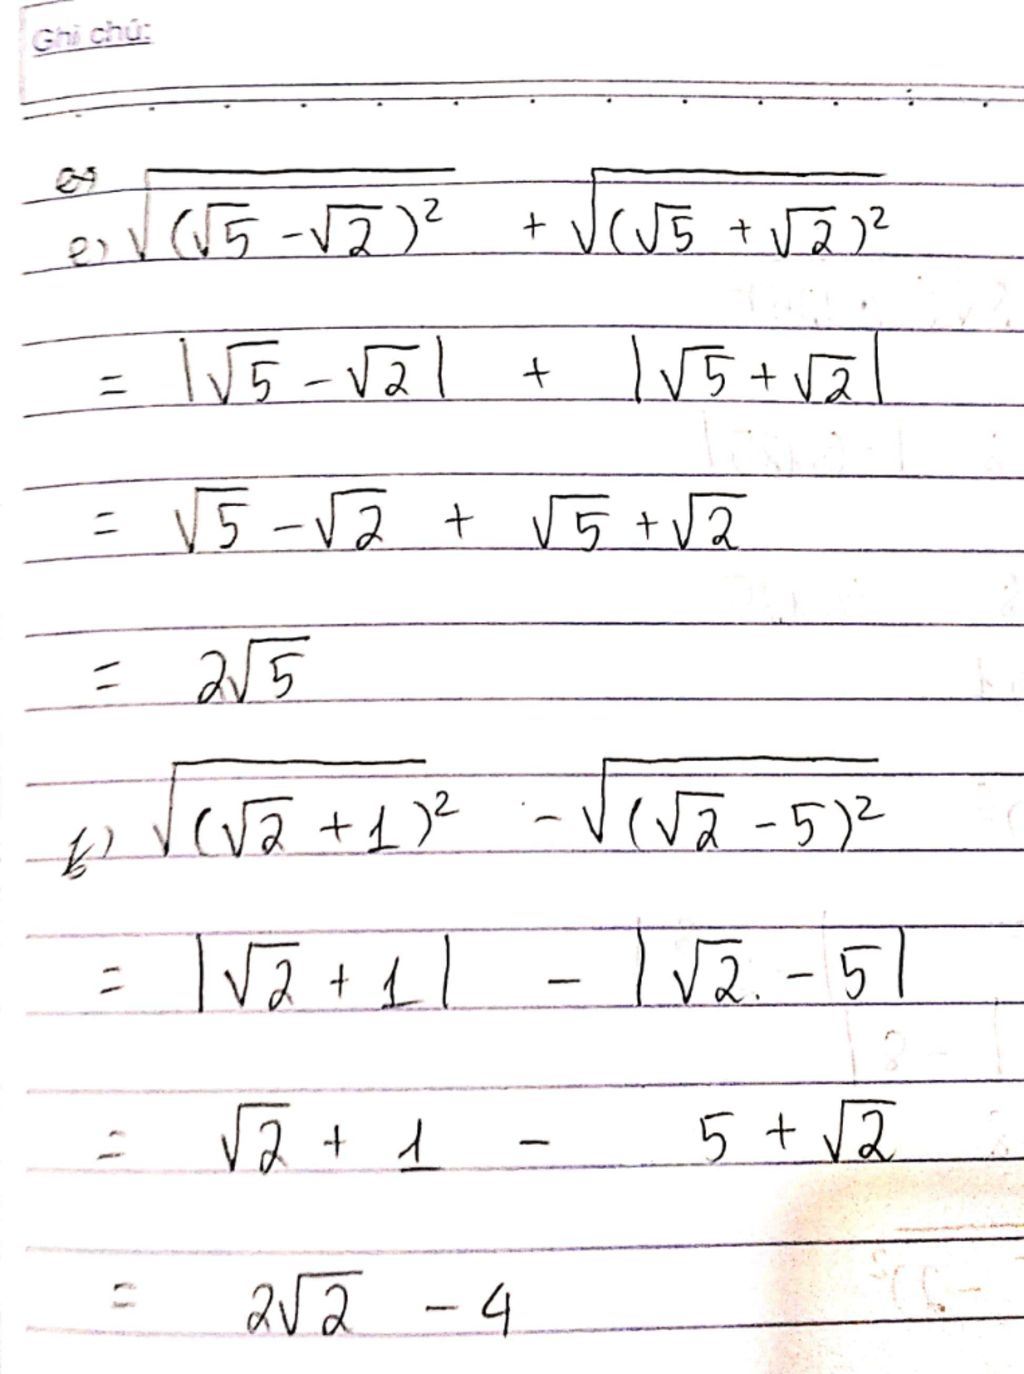 Ghi chú:
e) √(√5 - √2)² + √(√5 + √2)²
= |√5 - √2| + |√5 + √2|
= √5 - √2 + √5 + √2
= 2√5
f) √(√2 + 1)² - √(√2 - 5)²
= |√2 + 1| - |√2 - 5|
= √2 + 1 - 5 + √2
= 2√2 - 4